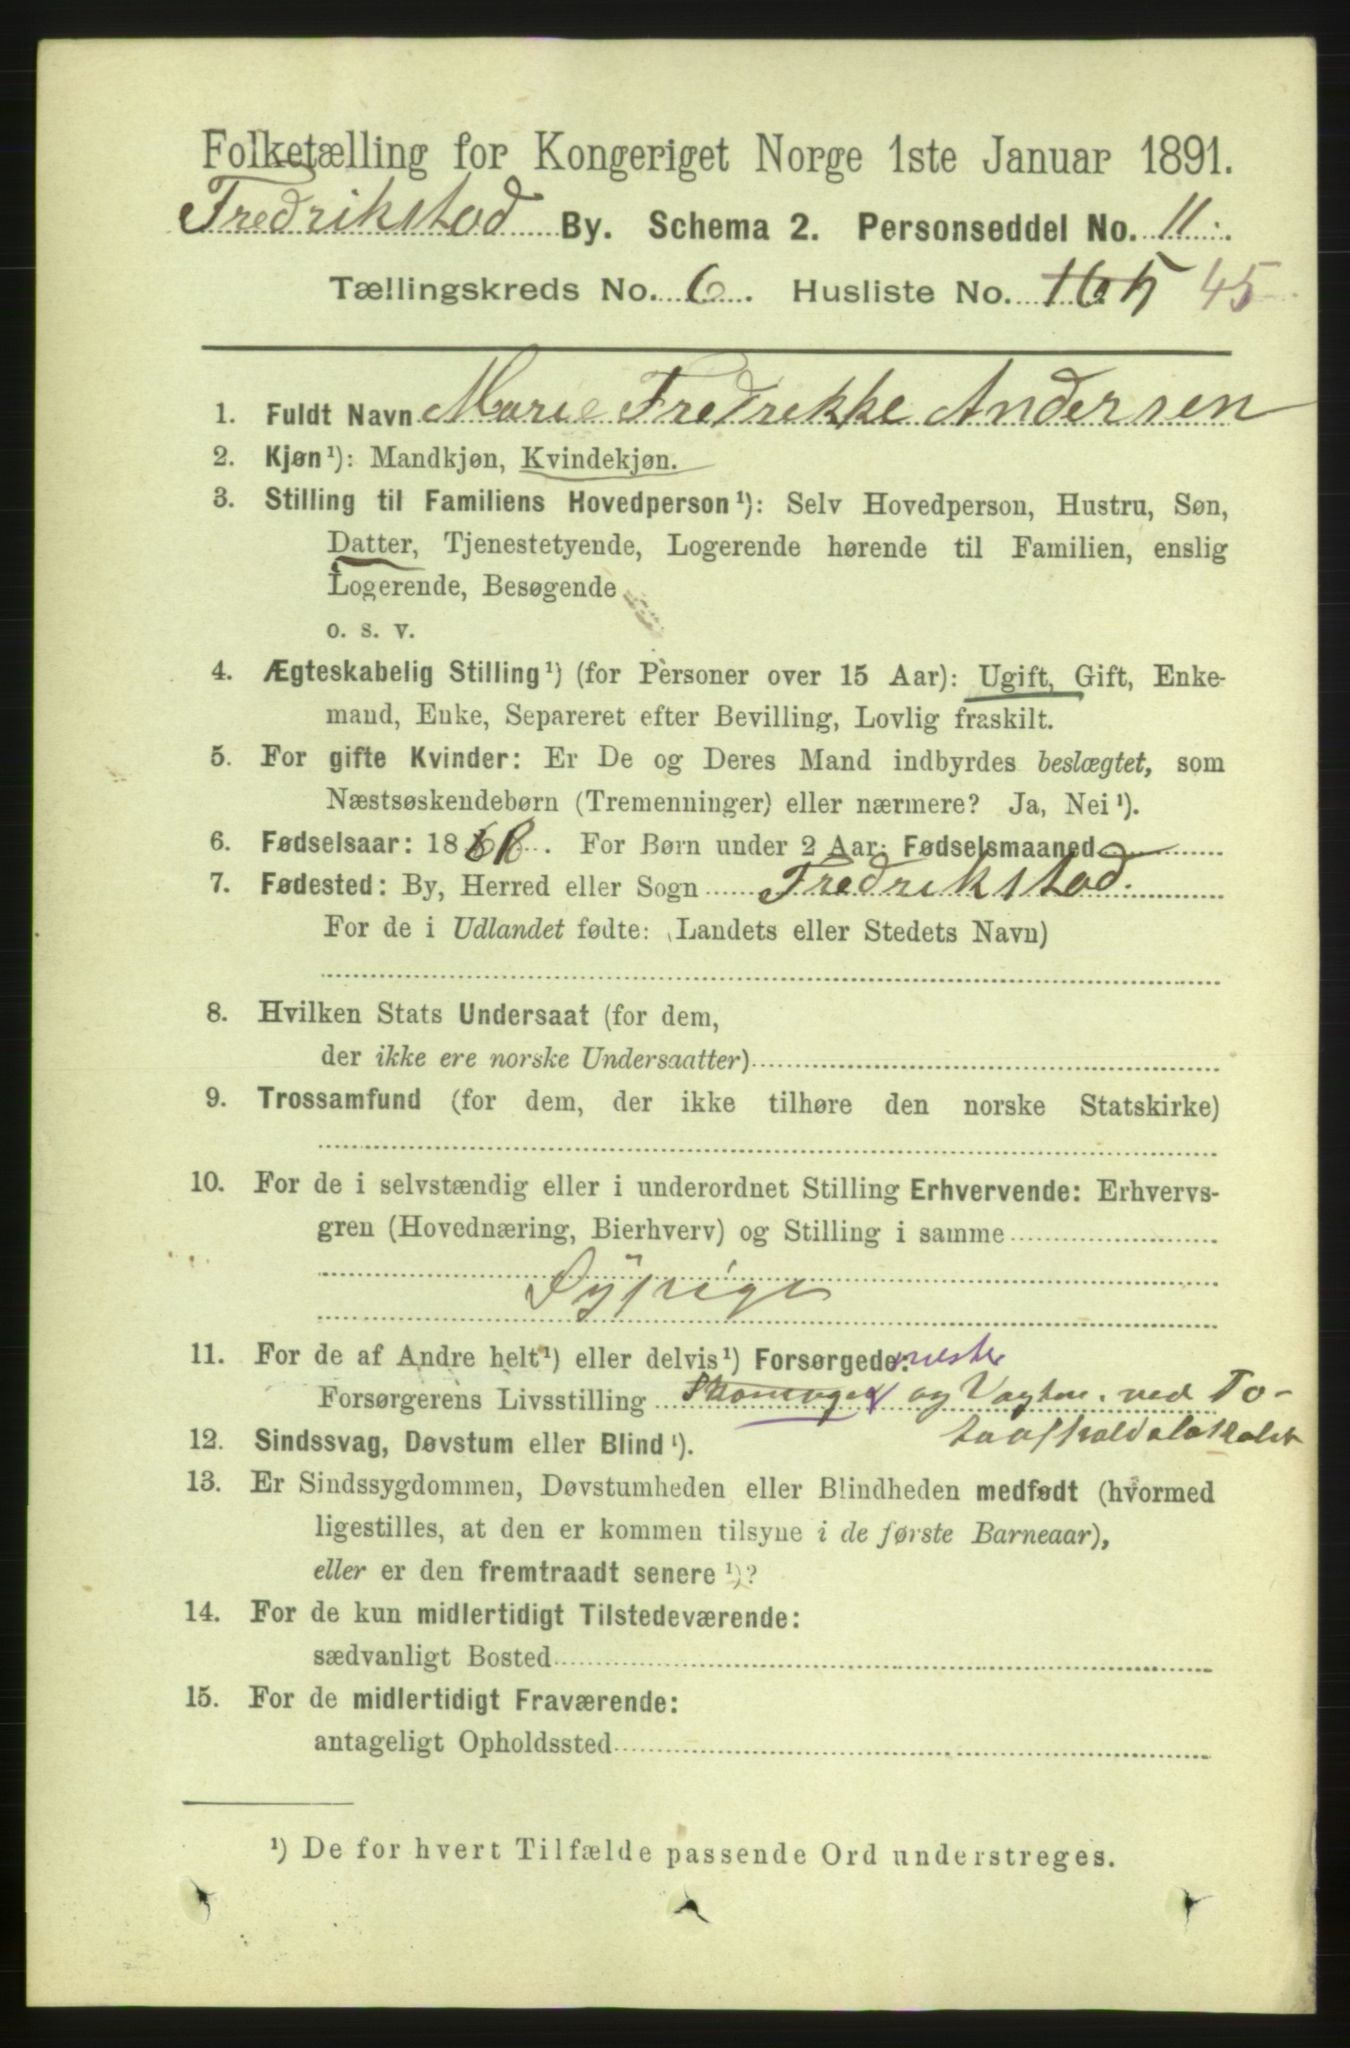 Folketælling for Kongeriget Norge 1ste Januar 1891.
Fredrikstad By. Schema 2. Personseddel No. 11.
Tællingskreds No. 6. Husliste No. 165 45
1. Fuldt Navn Marie Fredrikke Andersen
2. Kjøn ¹): Mandkjøn, Kvindekjøn.
3. Stilling til Familiens Hovedperson ¹): Selv Hovedperson, Hustru, Søn,
Datter, Tjenestetyende, Logerende hørende til Familien, enslig
Logerende, Besøgende
o. s. v.
4. Ægteskabelig Stilling ¹) (for Personer over 15 Aar): Ugift, Gift, Enke-
mand, Enke, Separeret efter Bevilling, Lovlig fraskilt.
5. For gifte Kvinder: Er De og Deres Mand indbyrdes beslægtet, som
Næstsøskendebørn (Tremenninger) eller nærmere? Ja, Nei ¹).
6. Fødselsaar: 1868. For Børn under 2 Aar: Fødselsmaaned
7. Fødested: By, Herred eller Sogn Fredrikstad.
For de i Udlandet fødte: (Landets eller Stedets Navn)
8. Hvilken Stats Undersaat (for dem,
der ikke ere norske Undersaatter)
9. Trossamfund (for dem, der ikke tilhøre den norske Statskirke)
10. For de i selvstændig eller i underordnet Stilling Erhvervende: Erhvervs-
gren (Hovednæring, Bierhverv) og Stilling i samme
Sypige
11. For de af Andre helt ¹) eller delvis ¹) Forsørgede: mester
Forsørgerens Livsstilling Skomager og Vagtm. ved To-
12. Sindssvag, Døvstum eller Blind ¹).
13. Er Sindssygdommen, Døvstumheden eller Blindheden medfødt (hvormed
ligestilles, at den er kommen tilsyne i de første Barneaar),
eller er den fremtraadt senere ¹)?
14. For de kun midlertidigt Tilstedeværende:
sædvanligt Bosted
15. For de midlertidigt Fraværende:
antageligt Opholdssted
¹) De for hvert Tilfælde passende Ord understreges.